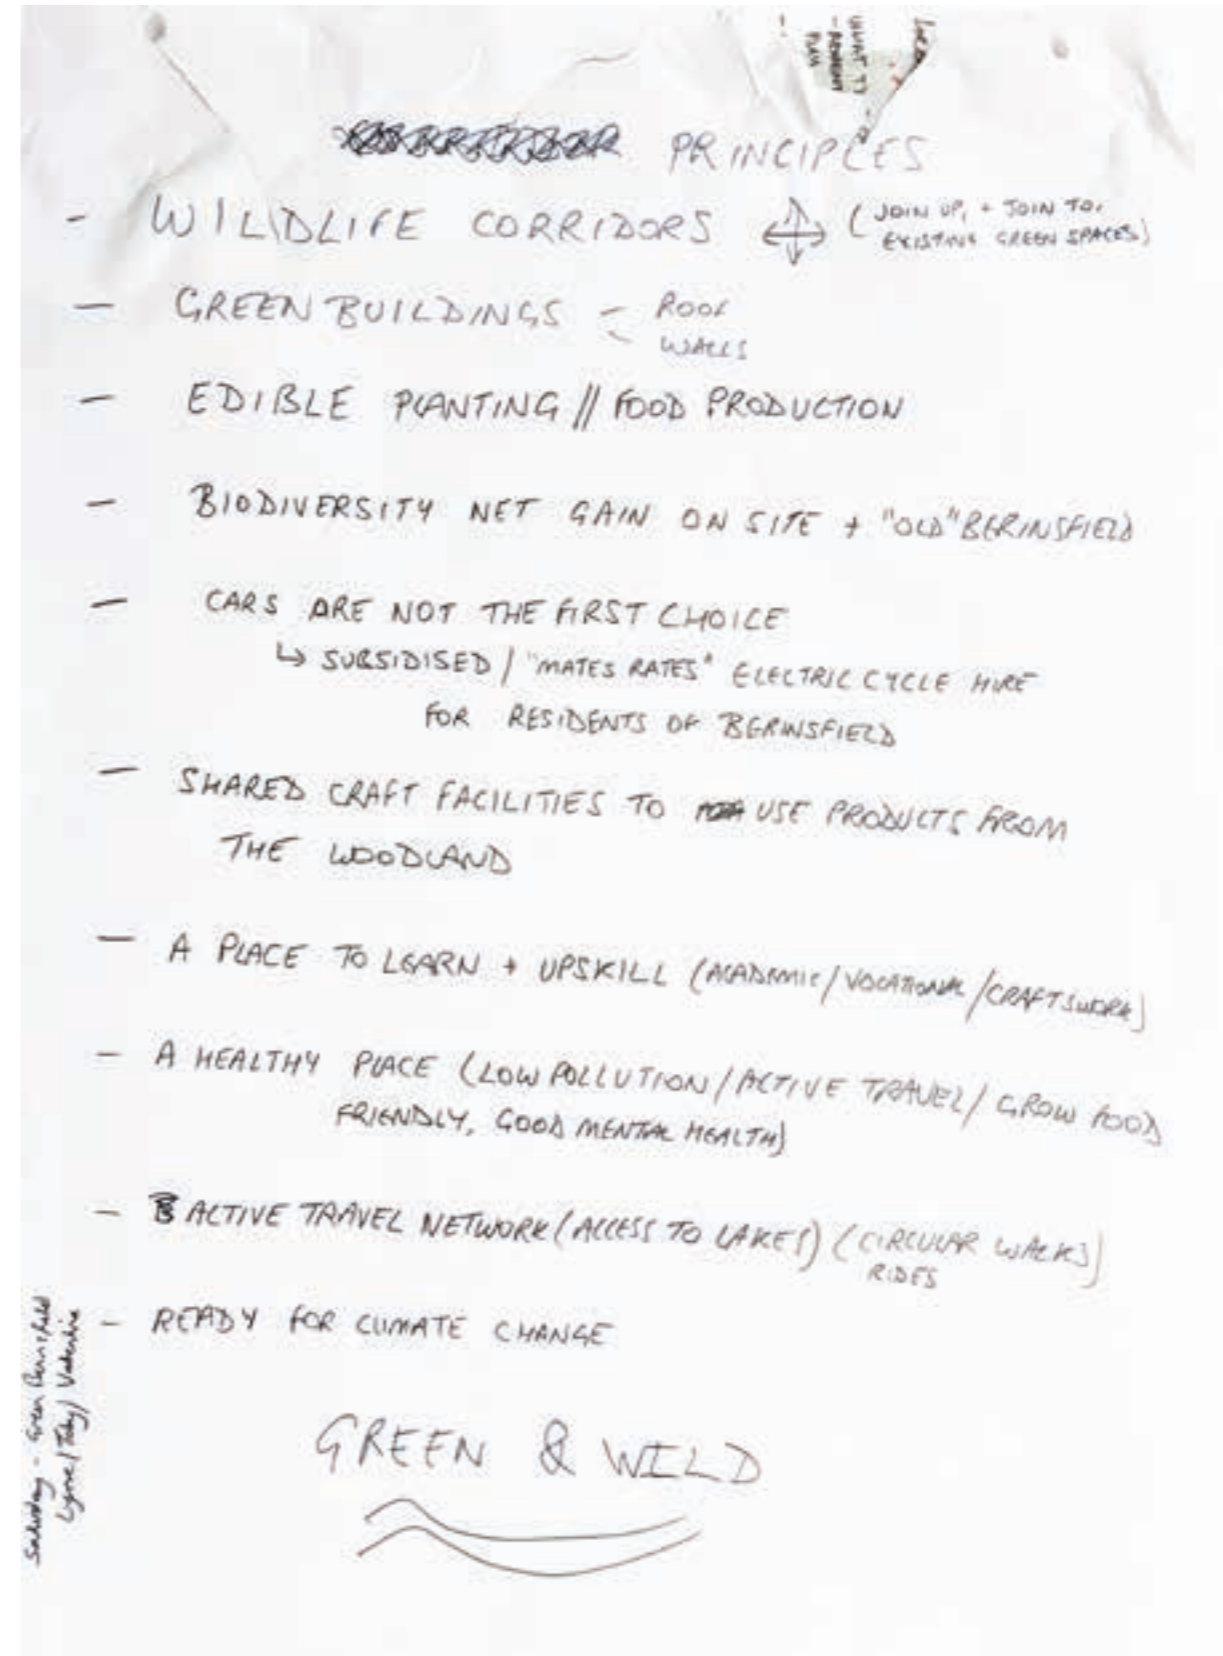 PRINCIPLES
- WILDLIFE CORRIDORS (JOIN UP, + JOIN TO,
EXISTING GREEN SPACES)
- GREEN BUILDINGS - ROOF
- WALLS
- EDIBLE PLANTING // FOOD PRODUCTION
- BIODIVERSITY NET GAIN ON SITE + "OLD" BERINSFIELD
- CARS ARE NOT THE FIRST CHOICE
↳ SUBSIDISED / "MATES RATES" ELECTRIC CYCLE HIRE
FOR RESIDENTS OF BERINSFIELD
- SHARED CRAFT FACILITIES TO USE PRODUCTS FROM
THE WOODLAND
- A PLACE TO LEARN + UPSKILL (ACADEMIC / VOCATIONAL / CRAFTSWORK)
- A HEALTHY PLACE (LOW POLLUTION / ACTIVE TRAVEL / GROW FOOD
FRIENDLY, GOOD MENTAL HEALTH)
- ACTIVE TRAVEL NETWORK (ACCESS TO LAKES) (CIRCULAR WALKS)
RIDES
- READY FOR CLIMATE CHANGE
GREEN & WILD
Saturday - Green Berinsfield
Lynne / Toby / Valentine
PLAN